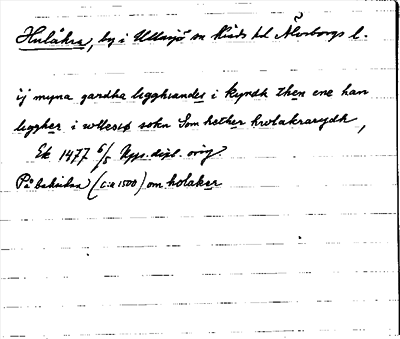 Hulåkra, by i Ullasjö sn Kinds hd Älvsborgs l.
ij myna gardha legghiandes i kyndh then ene han
leggher i wllesiø sokn Som hether hwlakrarydh,
Ek 1477 6/5 Upps. dipl. orig.
På baksidan (c:a 1500) om holaker